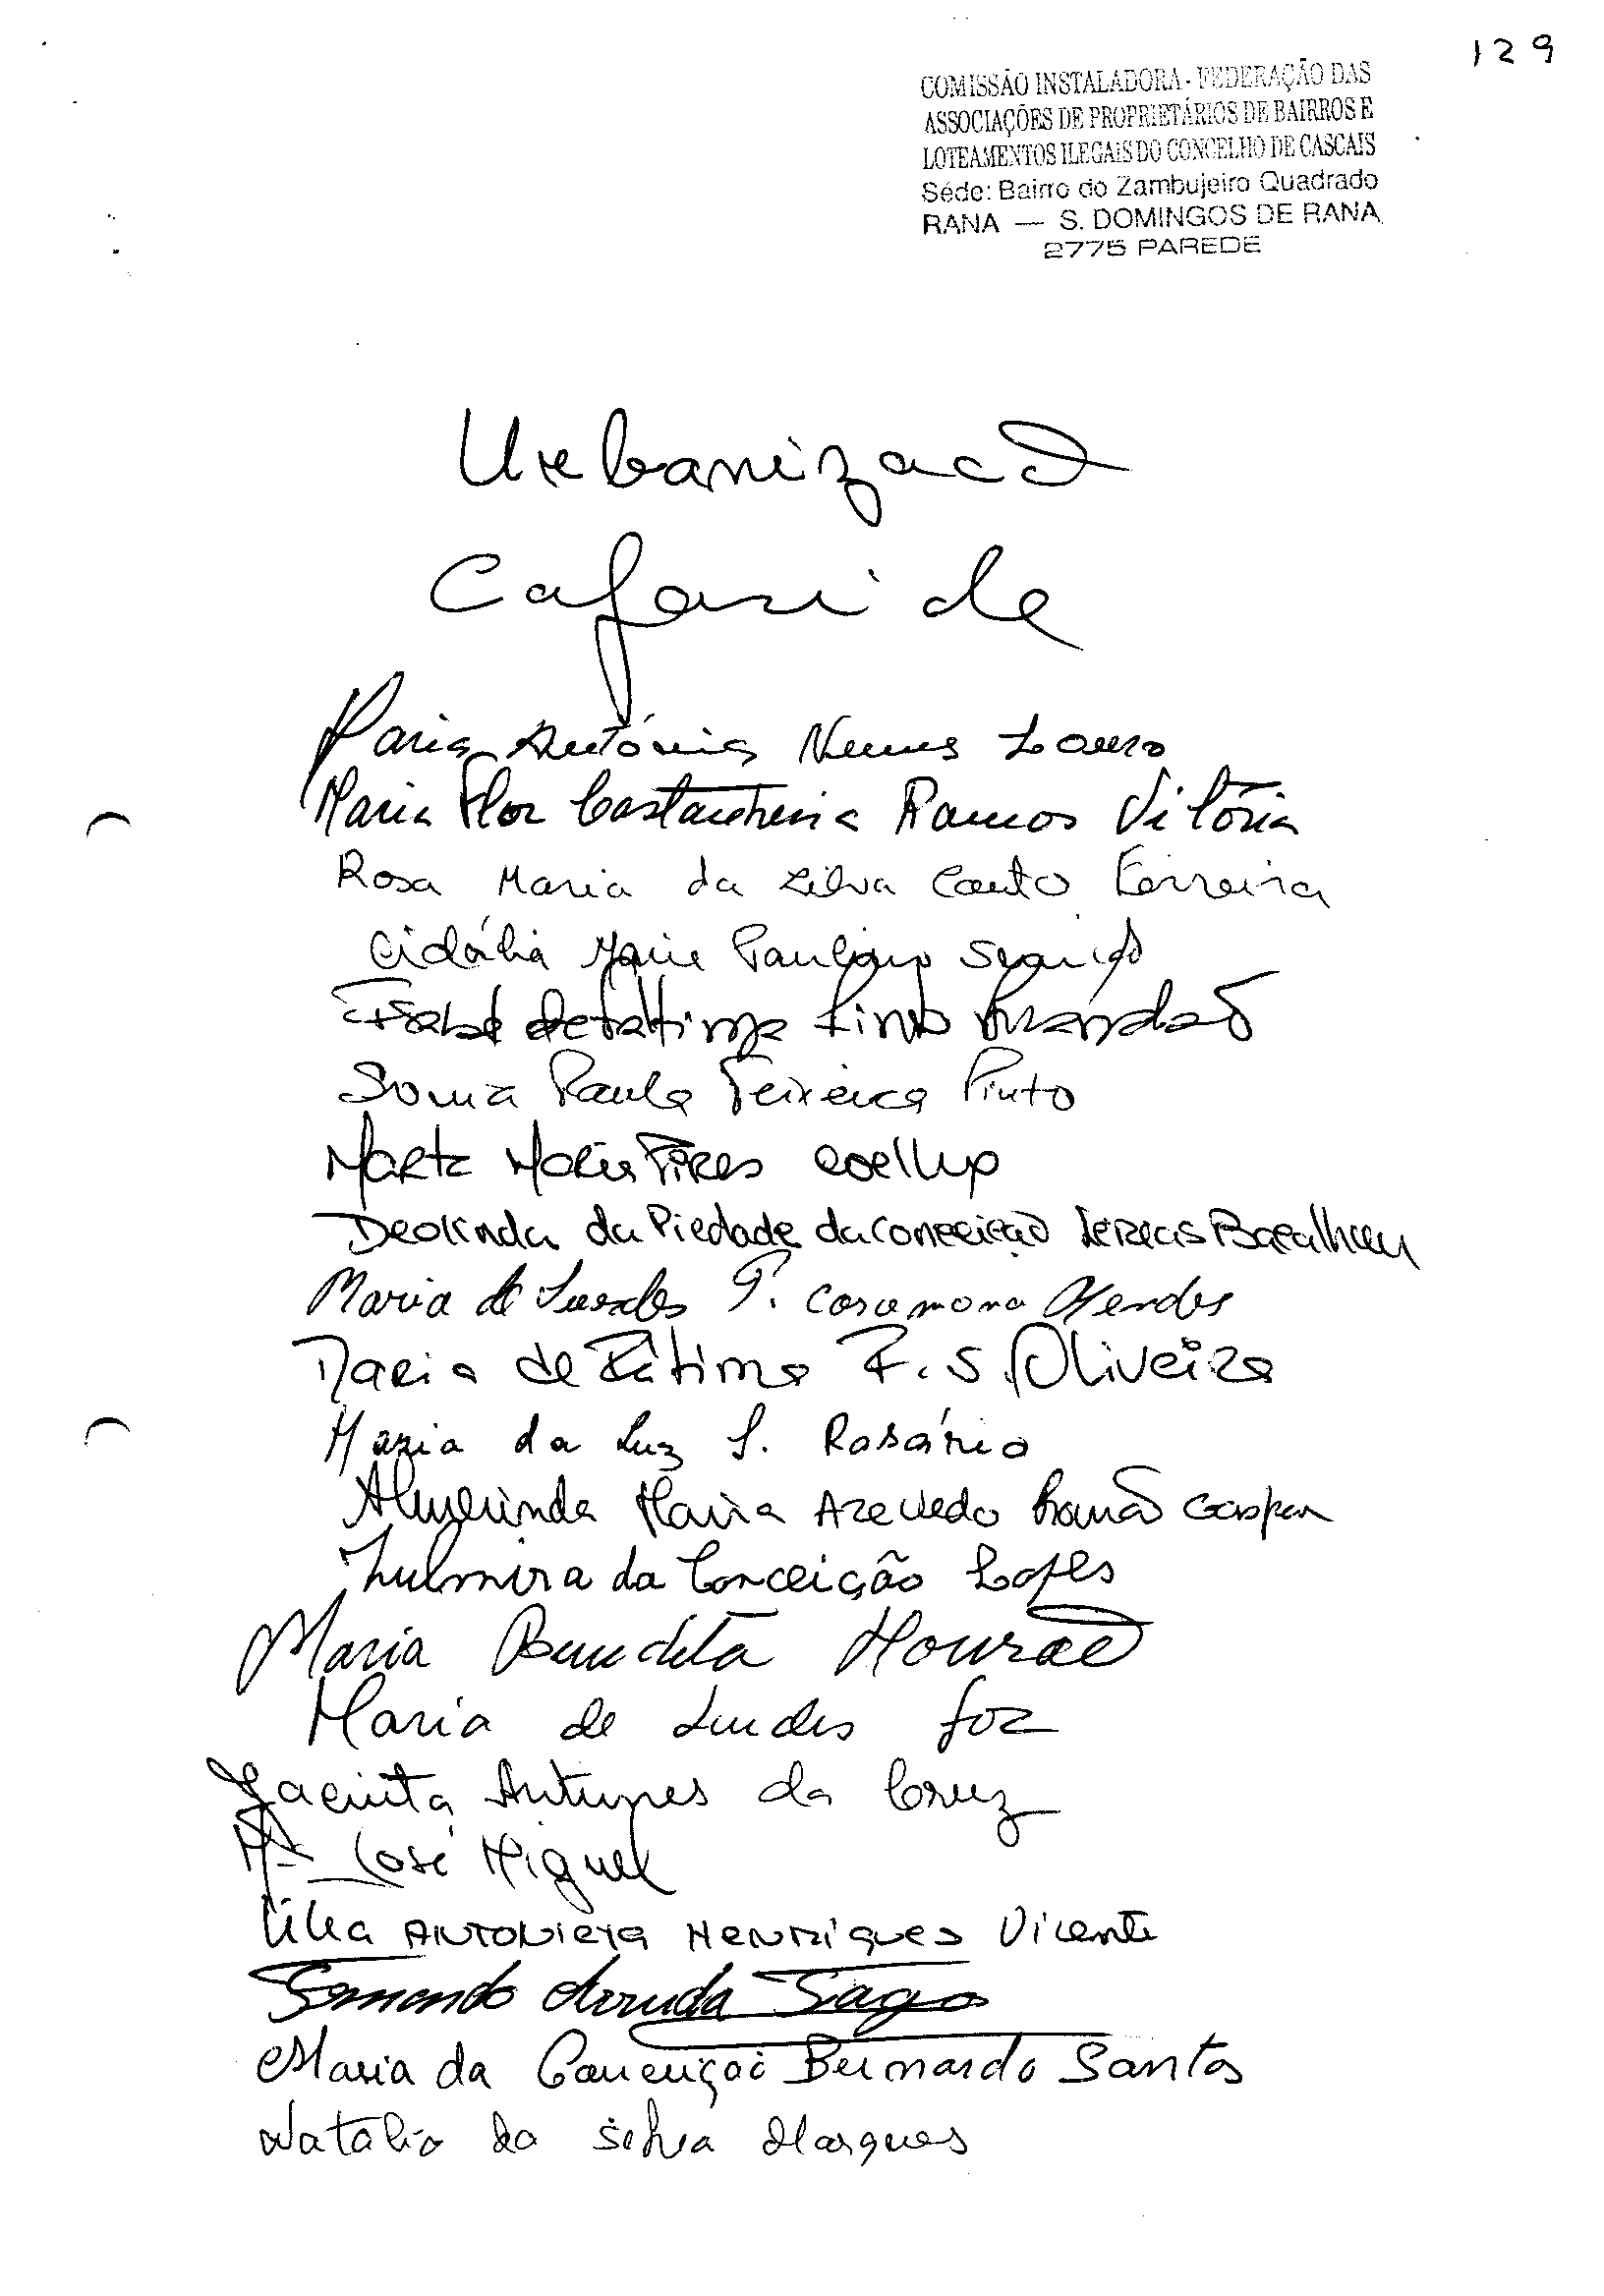 129
COMISSÃO INSTALADORA - FEDERAÇÃO DAS
ASSOCIAÇÕES DE PROPRIETÁRIOS DE BAIRROS E
LOTEAMENTOS ILEGAIS DO CONCELHO DE CASCAIS
Séde: Bairro do Zambujeiro Quadrado
RANA — S. DOMINGOS DE RANA
2775 PAREDE
Urbanizacão
Cafari de
Maria Antónia Nunes Louro
Maria Flor Castanheira Ramos Vitória
Rosa Maria da Silva Couto Ferreira
Cidália Maria Paulino
Isabel de Fatima Pinto Brandão
Sonia Paula Teixeira Pinto
Marta Maria Pires Coelho
Deolinda da Piedade da Conceicão Bacalhau
Maria de Lurdes P. Caramona Mendes
Maria de Fátima F. S. Oliveira
Maria da Luz S. Rosário
Almerinda Maria Azevedo Romão Gaspar
Zulmira da Conceição Lopes
Maria Benedita Mourão
Maria de Lurdes Foz
Jacinta Antunes da Cruz
Mª José Miguel
Lilia ANTONIETA HENRIQUES Vicente
Fernando Arruda Tiago
Maria da Conceiçaõ Bernardo Santos
Natalia da Silva Marques